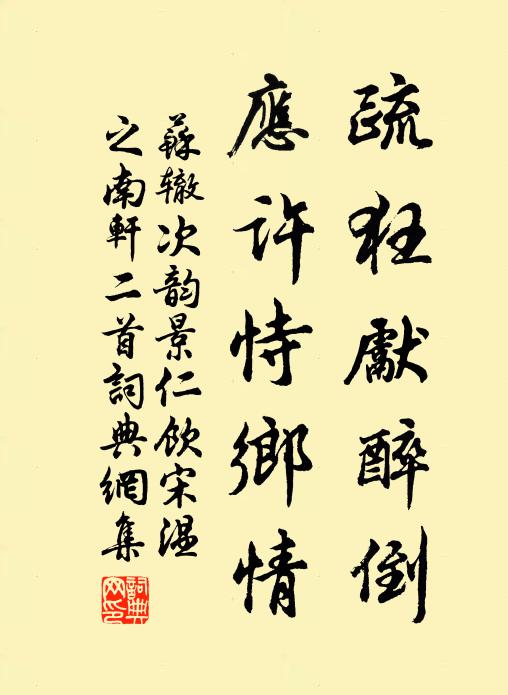 疏狂獻醉倒
應許恃鄉情
蘇辙次韵景仁飲宋温
之南軒二首詞典網集
詞典网印